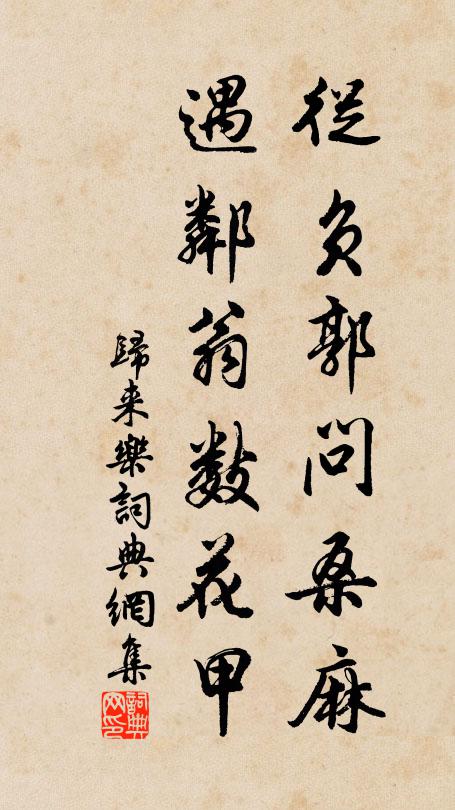 從負郭問桑麻
遇鄰翁數花甲
歸來樂詞典網集
詞典网印